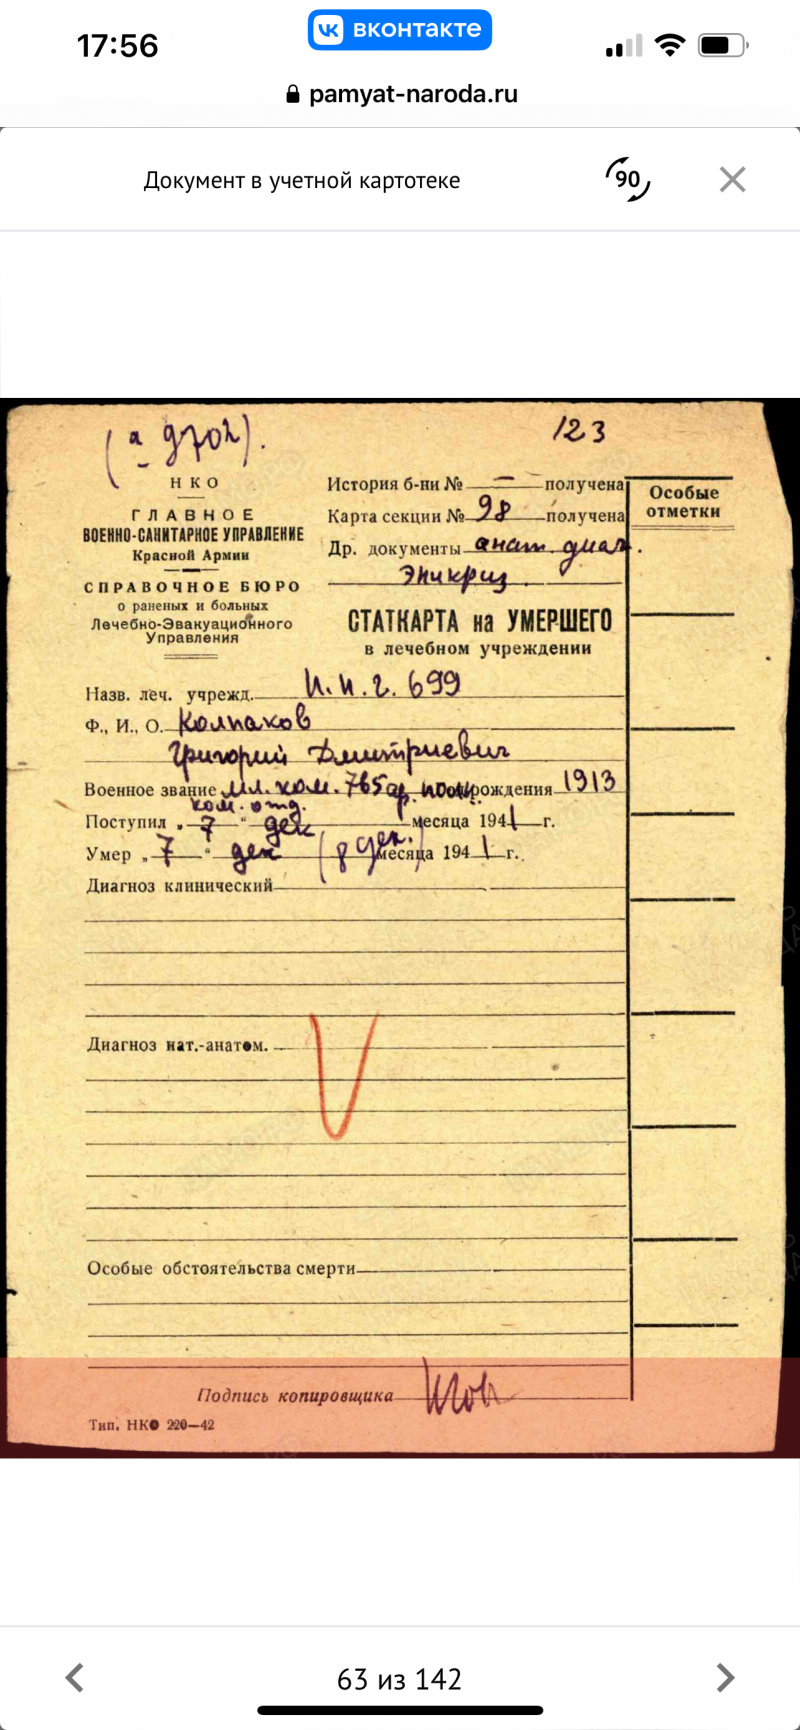 17:56
вконтакте
pamyat-naroda.ru
Документ в учетной картотеке
90
(а 9702).
123
НКО
ГЛАВНОЕ
ВОЕННО-САНИТАРНОЕ УПРАВЛЕНИЕ
Красной Армии
СПРАВОЧНОЕ БЮРО
о раненых и больных
Лечебно-Эвакуационного
Управления
История б-ни № — получена
Карта секции № 98 получена
Др. документы анат. диаг.
Эпикриз.
СТАТКАРТА на УМЕРШЕГО
в лечебном учреждении
Особые
отметки
Назв. леч. учрежд. 699
Ф., И., О. Колпаков
Григорий Дмитриевич
Военное звание мл. ком. 765 ар. полк. рождения 1913
ком. отд.
Поступил „7“ дек месяца 1941 г.
Умер „7“ дек (8 дек.) месяца 1941 г.
Диагноз клинический
Диагноз пат.-анатом.
Особые обстоятельства смерти
Подпись копировщика
Тип. НКО 220—42
63 из 142